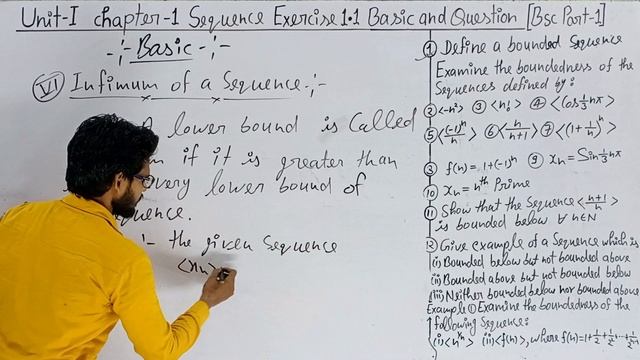 Unit-I chapter-1 Sequence Exercise 1.1 Basic and Question [Bsc Part-1]
-:- Basic -:-
(VI) Infimum of a Sequence -:-
A lower bound is called
if it is greater than
every lower bound of
:- the given Sequence
<xn>
① Define a bounded Sequence
Examine the boundedness of the
Sequences defined by:
② <-n²> ③ ④ <cos 1/3 nπ>
⑤ <(-1)^n/n> ⑥ <n/n+1> ⑦ <(1+1/n)^n>
f(n) = 1+(-1)^n ⑨ xn = Sin 1/3 nπ
⑩ xn = nth Prime
⑪ Show that the Sequence <n+1/n>
is bounded below ∀ n∈N
Give example of a Sequence which is
(i) Bounded below but not bounded above
(ii) Bounded above but not bounded below
(iii) Neither bounded below nor bounded above
Example ① Examine the boundedness of the
following Sequence:
(ii) <f(n)>, where f(n)=1+1/2+